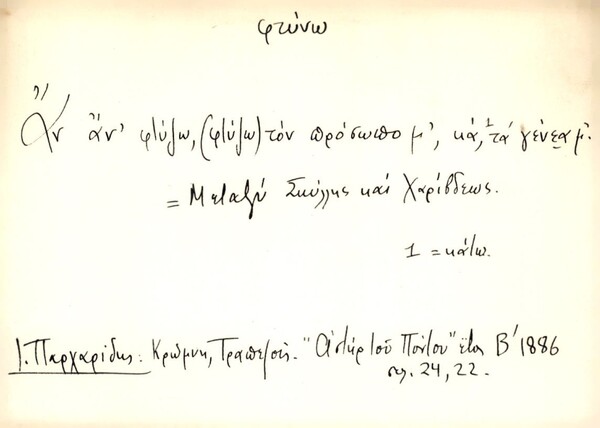 φτύνω
Ἂν ἄν' φτύζω, (φτύζω) τόν πρόσωπο μ', κά,¹ τά γένεα μ'.
= Μεταξύ Σκύλλης καί Χαρίβδεως.
1 = κάτω.
Ι. Παρχαρίδης: Κρώμνη, Τραπεζούς. "Ἀστήρ τοῦ Πόντου" ἔτος Β' 1886
σελ. 24, 22.